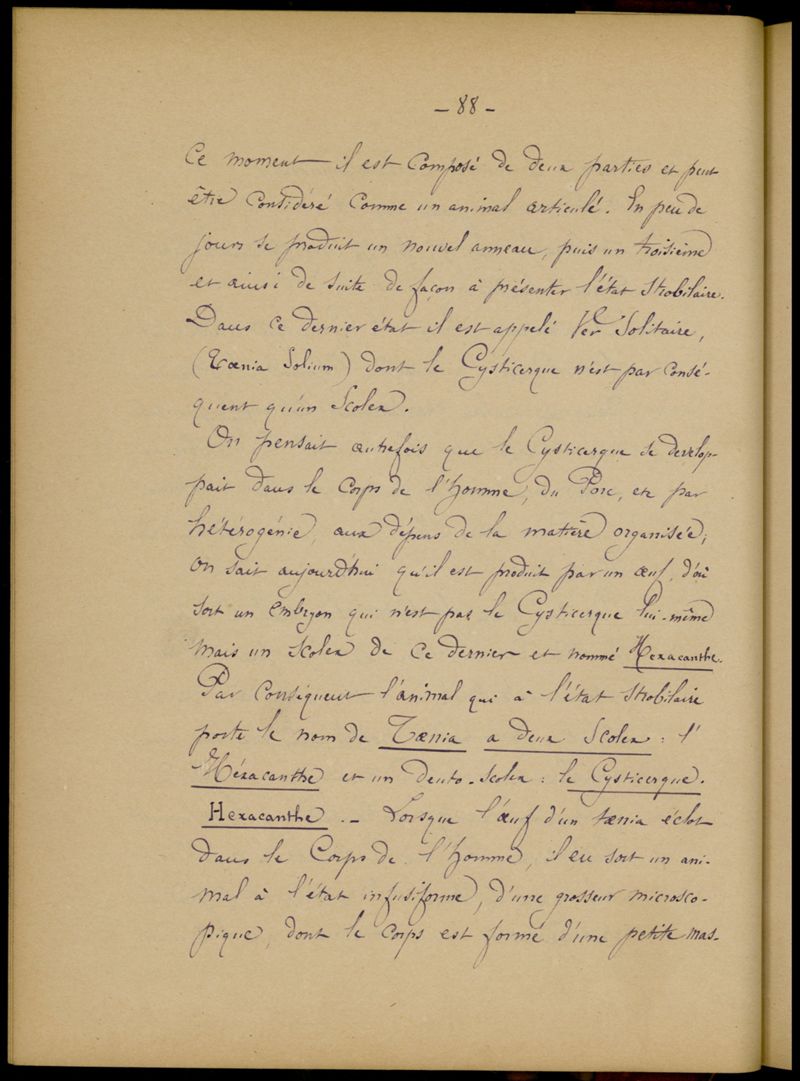 - 88 -
Ce moment il est composé de deux parties et peut
être considéré comme un animal articulé. En peu de
jours se produit un nouvel anneau, puis un troisième
et ainsi de suite de façon à présenter l'état strobilaire.
Dans ce dernier état il est appelé Ver Solitaire,
(Tœnia Solium) dont le Cysticerque n'est par consé-
quent qu'un Scolex.
On pensait autrefois que le Cysticerque se develop-
pait dans le corps de l'homme, du Porc, etc par
hétérogénie, aux dépens de la matière organisée;
on sait aujourd'hui qu'il est produit par un œuf, d'où
sort un embryon qui n'est pas le Cysticerque lui-même
mais un scolex de ce dernier et nommé Hexacanthe.
Par conséquent l'animal qui à l'état strobilaire
porte le nom de Tœnia a deux Scolex : l'
Héxacanthe et un deuto-scolex : le Cysticerque.
Hexacanthe. - Lorsque l'œuf d'un tœnia éclot
dans le Corps de l'homme, il en sort un ani-
mal à l'état infusiforme, d'une grosseur microsco-
pique, dont le corps est formé d'une petite mas-